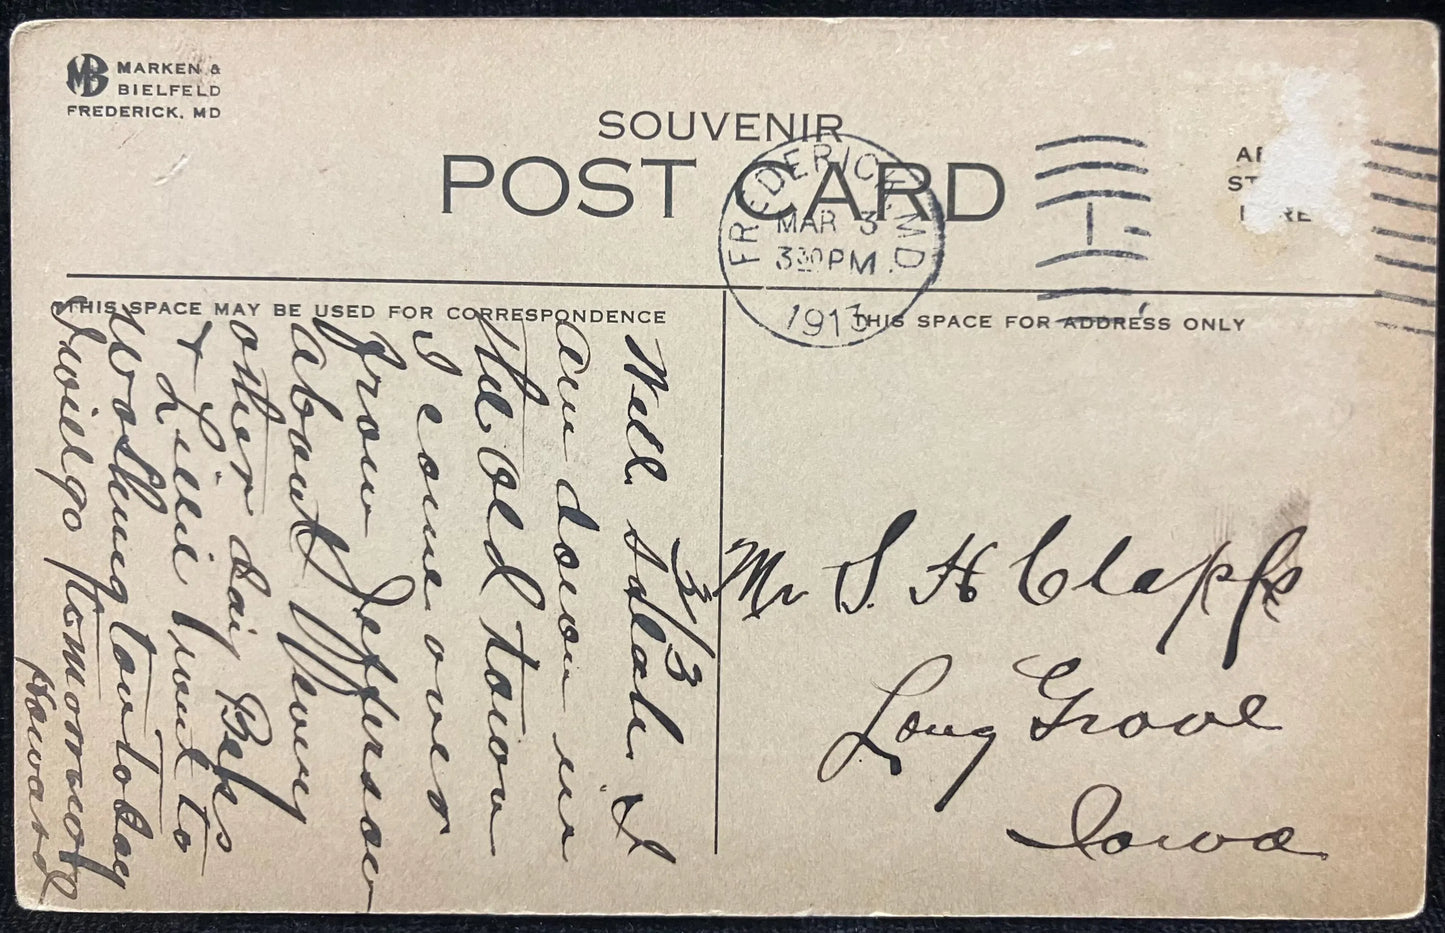 MB MARKEN &
BIELFELD
FREDERICK, MD
SOUVENIR
POST CARD
FREDERICK, MD
MAR 3
3 30 PM
1913
THIS SPACE MAY BE USED FOR CORRESPONDENCE
THIS SPACE FOR ADDRESS ONLY
3/3
Well I
am down in
the old town
I come over
from Jefferson
about Every
other day
& Lillie went to
Washingtown today
I will go tomorrow
Howard
Mr S. H Clapp
Long Grove
Iowa